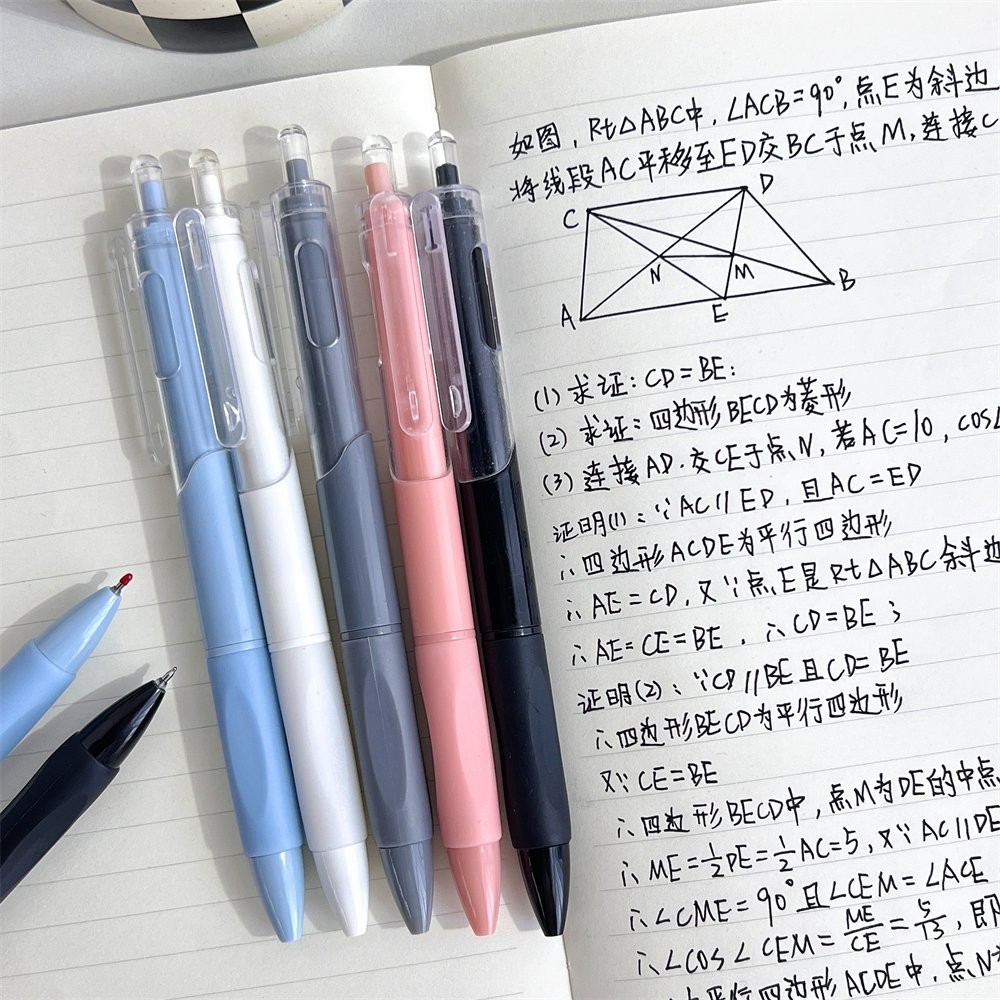 如图，Rt△ABC中，∠ACB=90°，点E为斜边
将线段AC平移至ED交BC于点M，连接C
D
C
N
M
B
A
E
(1) 求证：CD=BE；
(2) 求证：四边形BECD为菱形
(3) 连接AD.交CE于点N，若AC=10，cos∠
证明(1)：∵AC//ED，且AC=ED
∴四边形ACDE为平行四边形
∴AE=CD，又∵点E是Rt△ABC斜边
∴AE=CE=BE．∴CD=BE；
证明(2)：∵CD//BE且CD=BE
∴四边形BECD为平行四边形
又∵CE=BE
∴四边形BECD中，点M为DE的中点
∴ME=1/2DE=1/2AC=5，又∵AC//DE
∴∠CME=90°且∠CEM=∠ACE
∴∠cos∠CEM=ME/CE=5/13，即
平行四边形ACDE中，点N为